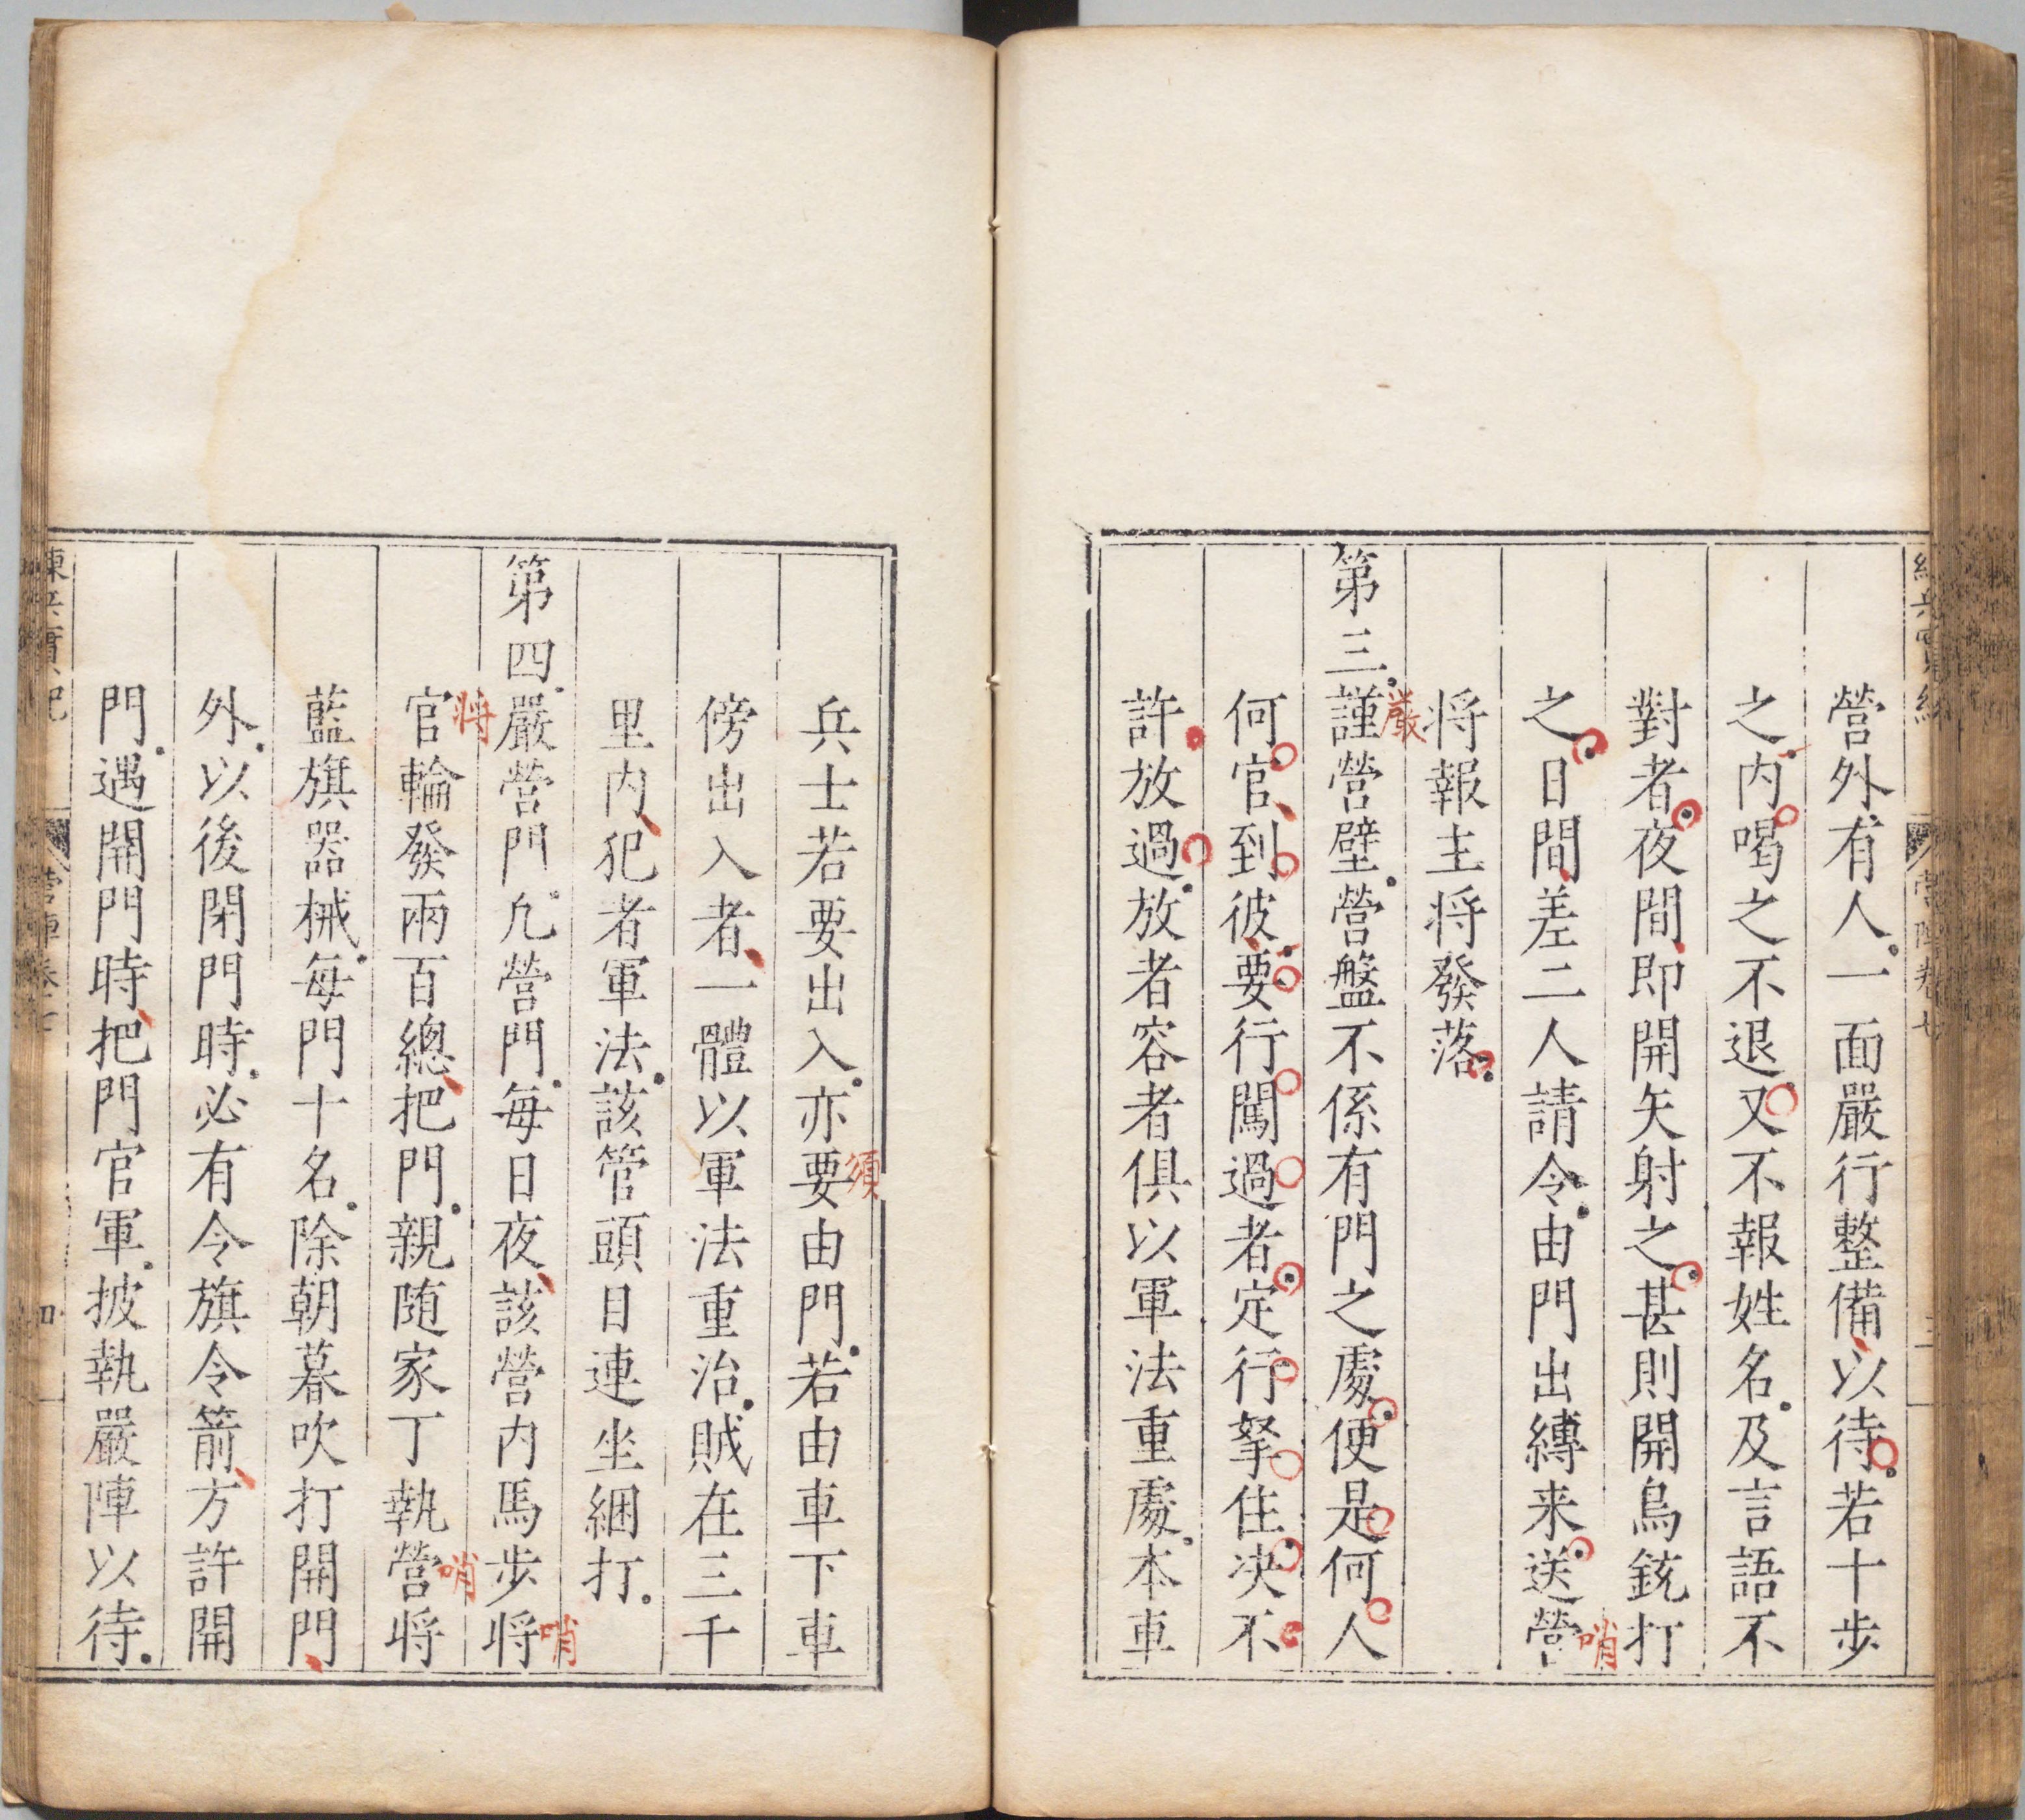 營外有人一面嚴行整備以待若十步
之内喝之不退又不報姓名及言語不
對者夜間即開矢射之甚則開鳥銃打
之日間差二人請令由門出縛来送營
哨
将報主将發落
第三謹營壁營盤不係有門之處便是何人
嚴
何官到彼要行闖過者定行拏住决不
許放過放者容者俱以軍法重處本車
兵士若要出入亦要由門若由車下車
須
傍出入者一體以軍法重治賊在三千
里内犯者軍法該管頭目連坐綑打
第四嚴營門凢營門每日夜該營内馬步将
哨
官輪發兩百總把門親随家丁執營将
将
哨
藍旗器械每門十名除朝暮吹打開門
外以後閉門時必有令旗令箭方許開
門遇開門時把門官軍披執嚴陣以待
四